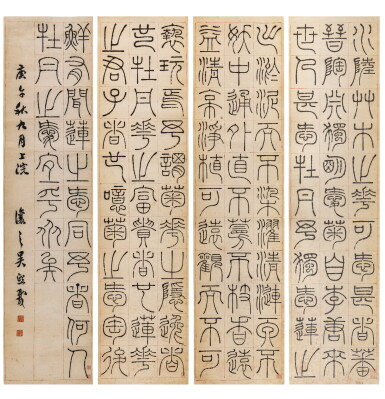 水陸草木之華可愛者甚蕃
晉陶淵明獨愛菊自李唐來
世人甚愛牡丹予獨愛蓮之
出淤泥而不染濯清漣而不
妖中通外直不蔓不枝香遠
益清亭淨植可遠觀而不可
褻玩焉予謂菊華之隱逸者
也牡丹華之富貴者也蓮華
之君子者也噫菊之愛陶後
鮮有聞蓮之愛同予者何人
牡丹之愛宜乎眾矣
庚午秋九月上浣 讓之吳熙載